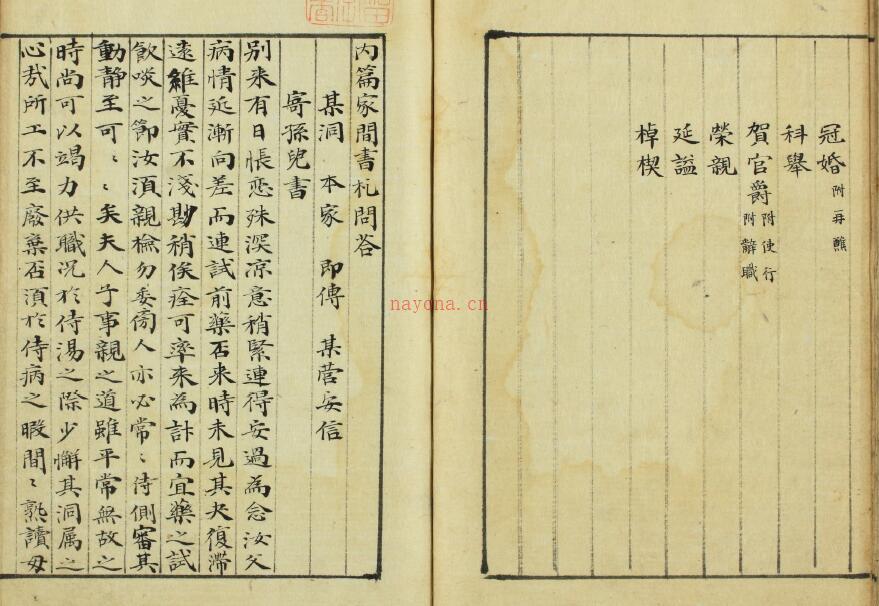 冠婚附再醮
科舉
賀官爵附使行附辭職
榮親
延謚
棹楔
內篇家間書札問答
某洞 本家 即傳 某營安信
寄孫兒書
別來有日悵戀殊深凉意稍緊連得安過為念汝父
病情近漸向差而連試前藥否來時未見其夬復滯
遠離憂實不淺尠稍俟痊可率來為計而宜藥之試
飲啖之節汝須親檢勿委傍人亦必常〻侍側審其
動靜至可〻〻矣夫人子事親之道雖平常無故之
時尚可以竭力供職况於侍湯之際少懈其洞属之
心㦲所工不至廢棄否須於侍病之暇間〻熟讀毋
nayona.cn